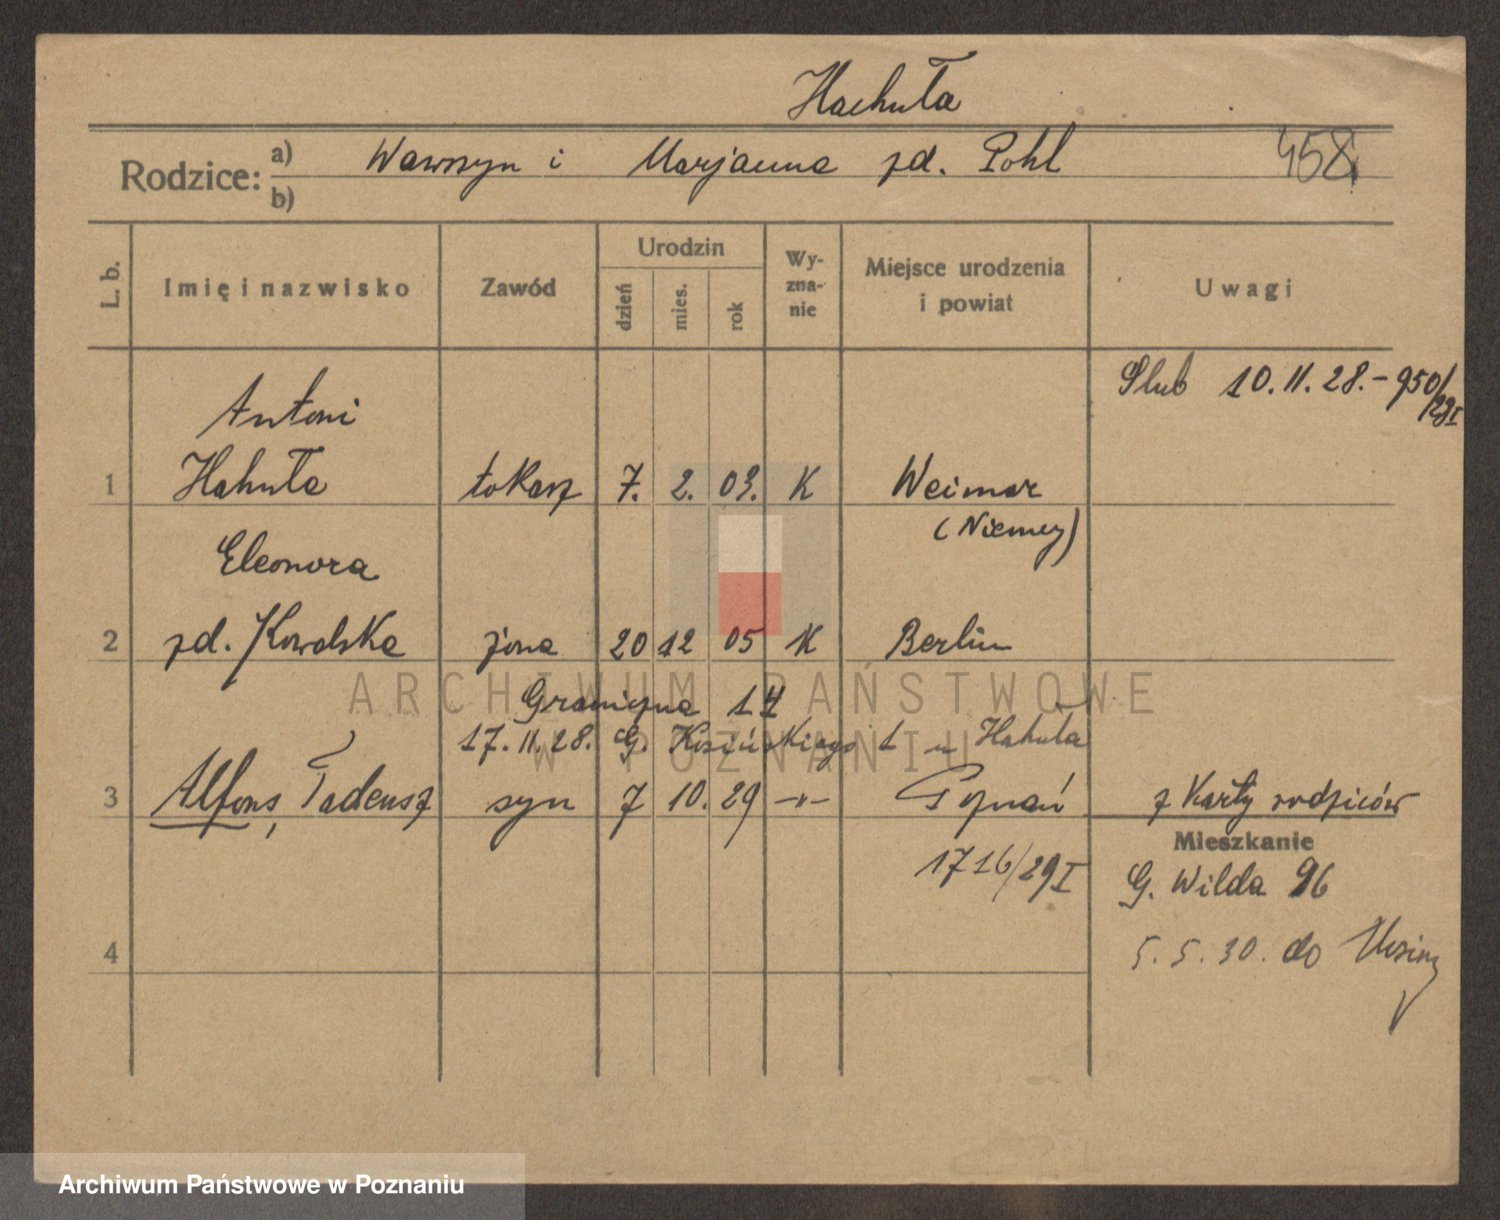 Hachuła
Rodzice: a) Wawrzyn i Marjanna zd. Pohl 458
b)
L. b. Imię i nazwisko Zawód Urodzin dzień mies. rok Wyznanie Miejsce urodzenia i powiat Uwagi
Ślub 10.11.28.- 950/28I
Antoni
1 Hahuła tokarz 7. 2. 03. K Weimar
(Niemcy)
Eleonora
2 zd. Kowalska żona 20 12 05 K Berlin
Graniczna 14
17.11.28. G. 1 u Hahuła
3 Alfons, Tadeusz syn 7 10. 29 -"- Poznań z Karty rodziców
Mieszkanie
1716/29I G. Wilda 96
4 5.5.30. do
ARCHIWUM PAŃSTWOWE
W POZNANIU
Archiwum Państwowe w Poznaniu